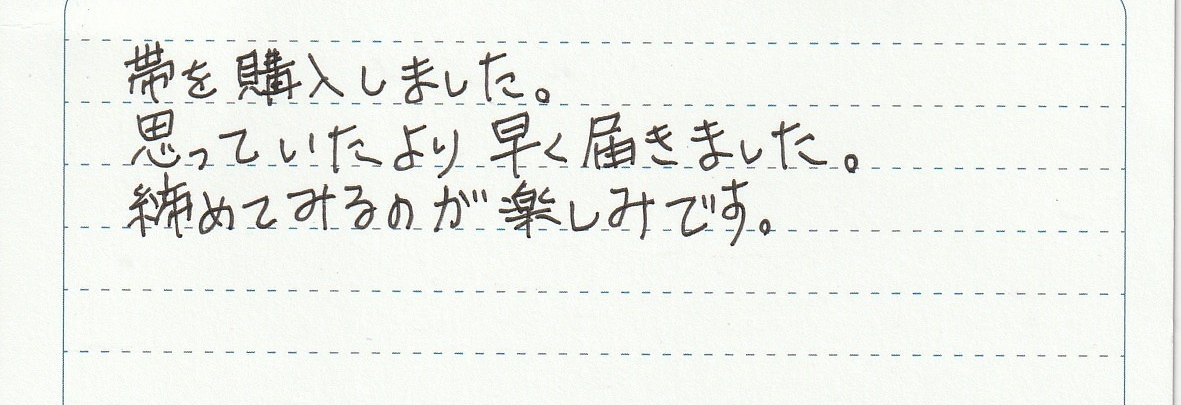 帯を購入しました。
思っていたより早く届きました。
締めてみるのが楽しみです。